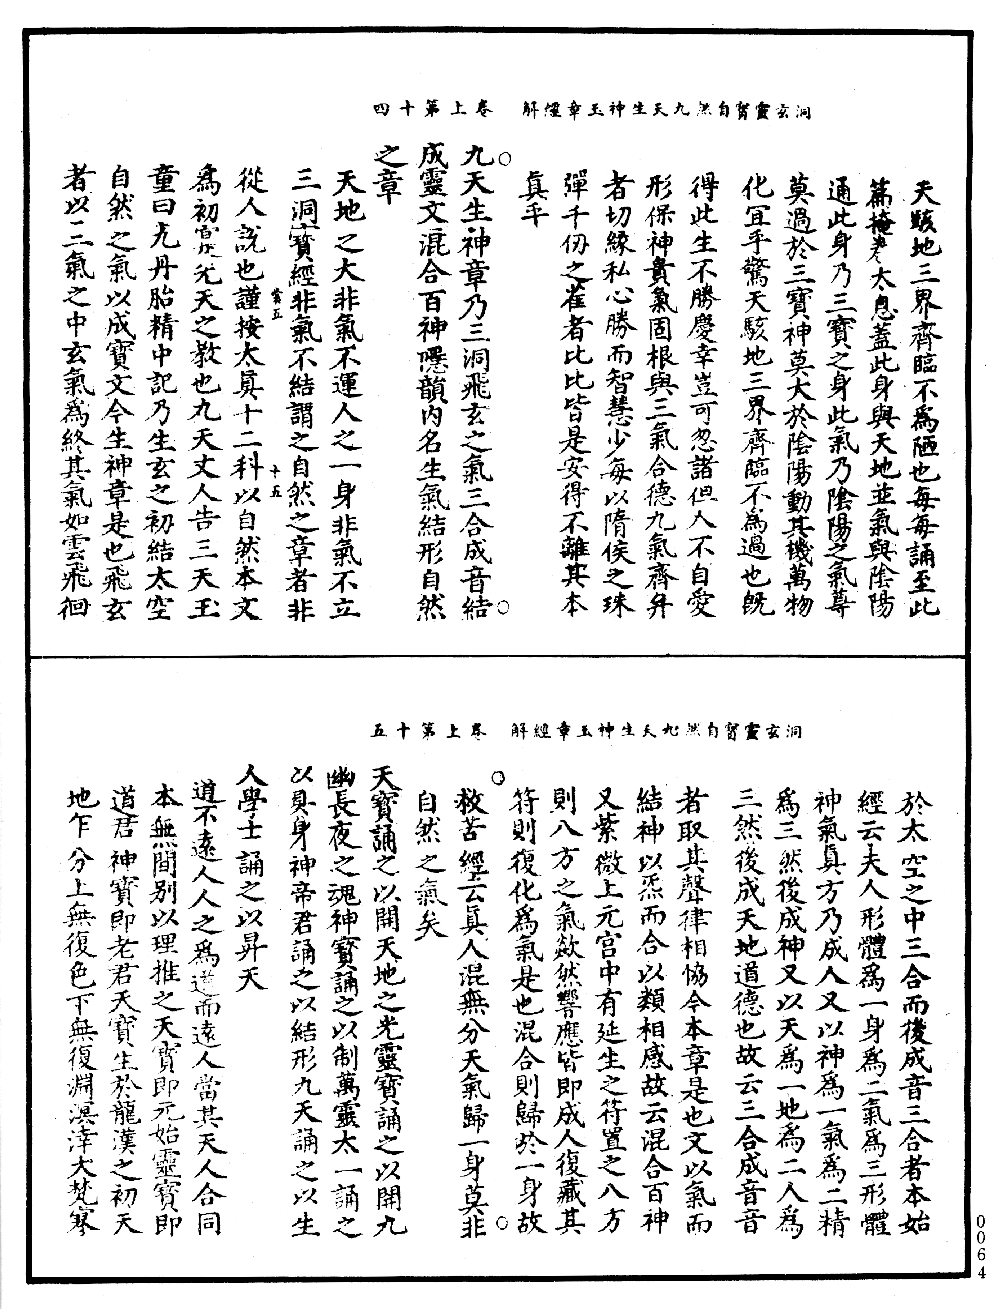 洞玄靈寶自然九天生神玉章經解　卷上第十四
天駭地三界齊臨不爲陋也每每誦至此
篇掩卷太息蓋此身與天地並氣與陰陽
通此身乃三寶之身此氣乃陰陽之氣尊
莫過於三寶神莫大於陰陽動其機萬物
化宜乎驚天駭地三界齊臨不爲過也旣
得此生不勝慶幸豈可忽諸但人不自愛
形保神貴氣固根與三氣合德九氣齊并
者切緣私心勝而智慧少每以隋侯之珠
彈千仞之雀者比比皆是安得不離其本
眞乎
○
九天生神章乃三洞飛玄之氣三合成音結
成靈文混合百神隱韻內名生氣結形自然
之章
○
天地之大非氣不運人之一身非氣不立
三洞寶經非氣不結謂之自然之章者非
從人說也謹按太眞十二科以自然本文
爲初元天之教也九天丈人告三天玉
童曰九丹胎精中記乃生玄之初結太空
自然之氣以成寶文今生神章是也飛玄
者以二氣之中玄氣爲終其氣如雲飛徊
十五
洞玄靈寶自然九天生神玉章經解　卷上第十五
於太空之中三合而後成音三合者本始
經云夫人形體爲一身爲二氣爲三形體
神氣眞方乃成人又以神爲一氣爲二精
爲三然後成神又以天爲一地爲二人爲
三然後成天地道德也故云三合成音音
者取其聲律相恊今本章是也文以氣而
結神以炁而合以類相感故云混合百神
又紫微上元宮中有延生之符置之八方
則八方之氣歘然響應皆即成人復藏其
符則復化爲氣是也混合則歸於一身故
○
救苦經云眞人混無分天氣歸一身莫非
自然之氣矣
○
天寶誦之以開天地之光靈寶誦之以開九
幽長夜之魂神寶誦之以制萬靈太一誦之
以具身神帝君誦之以結形九天誦之以生
人學士誦之以昇天
道不遠人人之爲道而遠人當其天人合同
本無間別以理推之天寶即元始靈寶即
道君神寶即老君天寶生於龍漢之初天
地乍分上無復色下無復淵溟涬大梵寥
0064